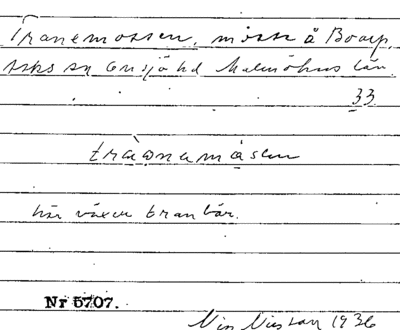 Tranemossen, mosse å Boarp,
Asks sn Onsjö hd Malmöhus län.
33
tråọnamåsen
här växer tranbär.
Nr 5707.
Nils Nilsson 1936